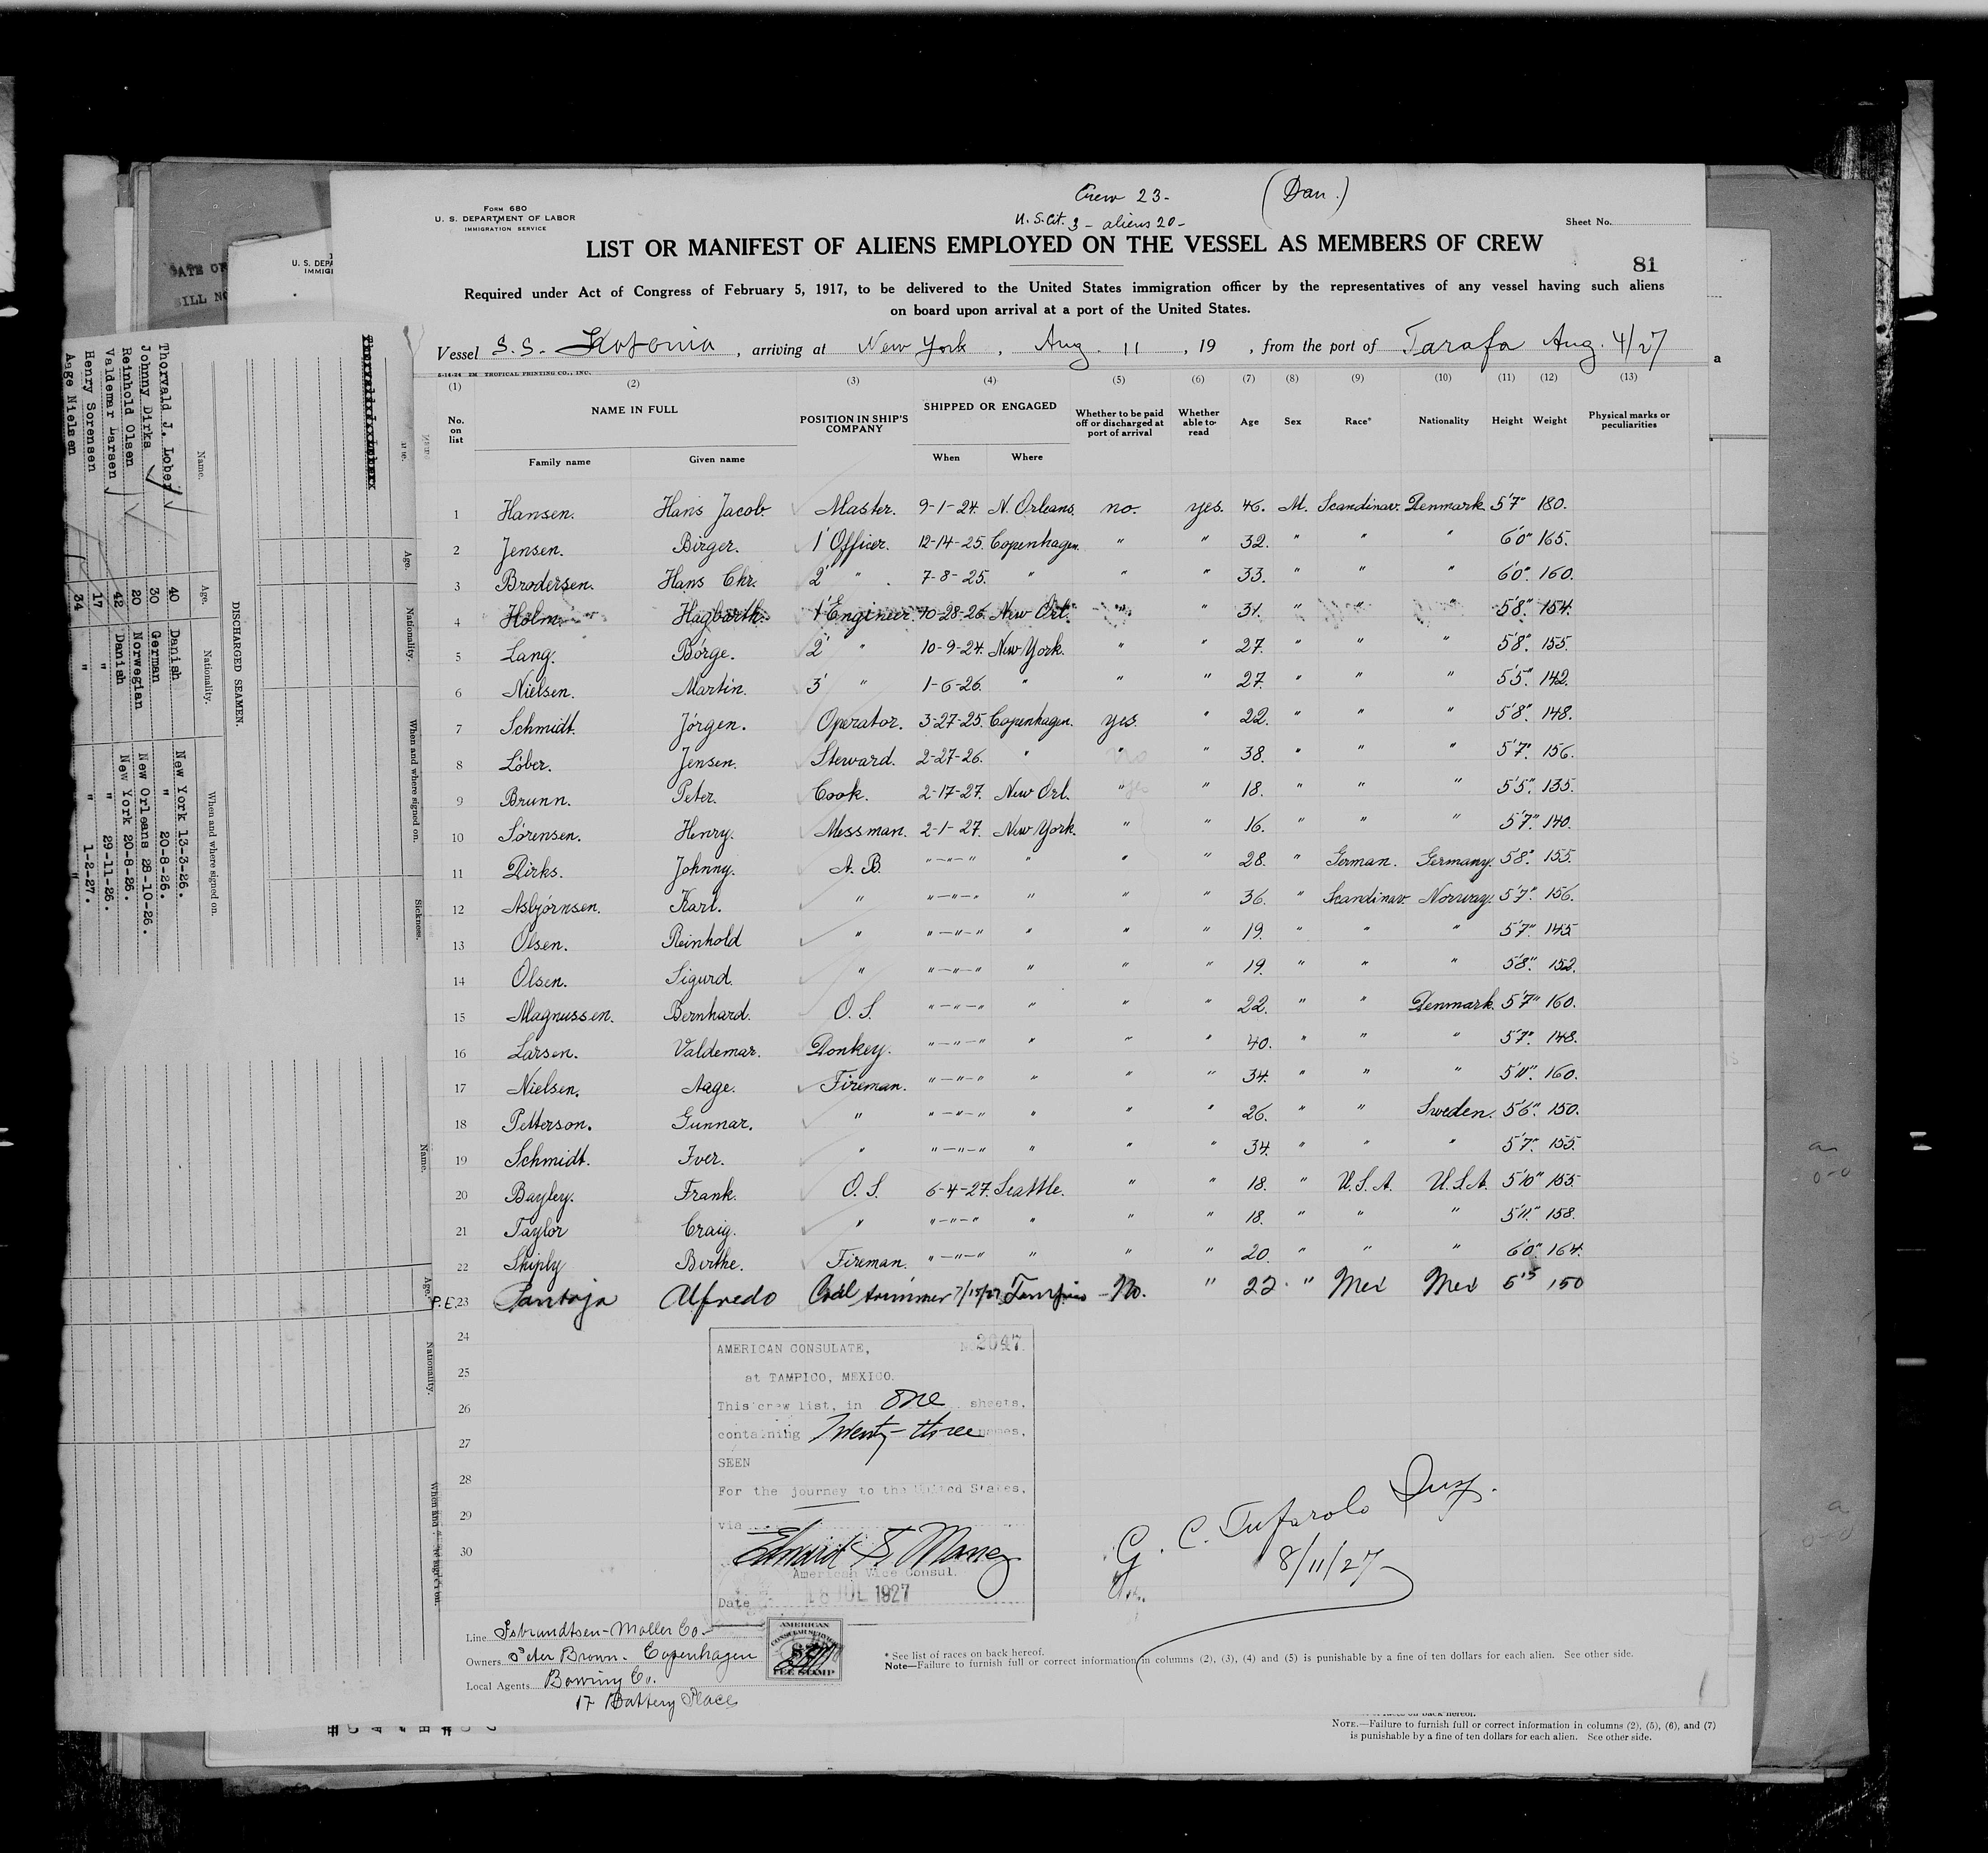 Crew 23- (Dan.)
U.S. Cit. 3 - aliens 20 -
FORM 680
U. S. DEPARTMENT OF LABOR
IMMIGRATION SERVICE
Sheet No.
LIST OR MANIFEST OF ALIENS EMPLOYED ON THE VESSEL AS MEMBERS OF CREW
81
Required under Act of Congress of February 5, 1917, to be delivered to the United States immigration officer by the representatives of any vessel having such aliens
on board upon arrival at a port of the United States.
Vessel S.S. , arriving at New York , Aug. 11 , 19 , from the port of Tarafa Aug. 4/27
5-14-24 2M TROPICAL PRINTING CO., INC.
(1) (2) (3) (4) (5) (6) (7) (8) (9) (10) (11) (12) (13)
No. on list NAME IN FULL POSITION IN SHIP'S COMPANY SHIPPED OR ENGAGED Whether to be paid off or discharged at port of arrival Whether able to read Age Sex Race* Nationality Height Weight Physical marks or peculiarities
Family name Given name When Where
1 Hansen. Hans Jacob. Master. 9-1-24. N. Orleans. no. yes. 46. M. Scandinav. Denmark. 5'7" 180.
2 Jensen. Birger. 1' Officer. 12-14-25. Copenhagen. " " 32. " " " 6'0" 165.
3 Brodersen. Hans Chr. 2' " . 7-8-25. " " " 33. " " " 6'0" 160.
4 Holm. Hagbarth. 1' Engineer. 10-28-26. New Orl. " " 31. " " " 5'8" 154.
5 Lang. Börge. 2' " 10-9-24. New York. " " 27. " " " 5'8" 155.
6 Nielsen. Martin. 3' " 1-6-26. " " " 27. " " " 5'5" 142.
7 Schmidt. Jörgen. Operator. 3-27-25. Copenhagen. yes. " 22. " " " 5'8" 148.
8 Löber. Jensen. Steward. 2-27-26. " " no " 38. " " " 5'7" 156.
9 Brunn. Peter. Cook. 2-17-27. New Orl. " yes " 18. " " " 5'5" 135.
10 Sörensen. Henry. Messman. 2-1-27. New York. " " 16. " " " 5'7" 140.
11 Dirks. Johnny. A. B. "-"-" " " " 28. " German. Germany. 5'8" 155.
12 Asbjörnsen. Karl. " "-"-" " " " 36. " Scandinav. Norway. 5'7" 156.
13 Olsen. Reinhold " "-"-" " " " 19. " " " 5'7" 145
14 Olsen. Sigurd. " "-"-" " " " 19. " " " 5'8" 152.
15 Magnussen. Bernhard. O. S. "-"-" " " " 22. " " Denmark. 5'7" 160.
16 Larsen. Valdemar. Donkey. "-"-" " " " 40. " " " 5'7" 148.
17 Nielsen. Aage. Fireman. "-"-" " " " 34. " " " 5'11" 160.
18 Petterson. Gunnar. " "-"-" " " " 26. " " Sweden. 5'6" 150.
19 Schmidt. Iver. " "-"-" " " " 34. " " " 5'7" 155.
20 Bayley. Frank. O. S. 6-4-27. Seattle. " " 18. " U.S.A. U.S.A. 5'10" 155.
21 Taylor Craig. " "-"-" " " " 18. " " " 5'11" 158.
22 Shiply Birthe. Fireman. "-"-" " " " 20. " " " 6'0" 164.
P.E. 23 Pantoja Alfredo Coal trimmer 7/15/27 Tampico - No. " 22 " Mex Mex 150
24
25
26
27
28
29
30
AMERICAN CONSULATE, No 2647
at TAMPICO, MEXICO.
This crew list, in one sheets,
containing Twenty-three names,
SEEN
For the journey to the United States,
via
American Vice Consul.
Date 18 JUL 1927
8/11/27
Line Isbrandtsen-Moller Co.
Owners Peter Brown. Copenhagen
Local Agents Bowring Co.
17 Battery Place
AMERICAN
CONSULAR SERVICE
FEE STAMP
* See list of races on back hereof.
Note—Failure to furnish full or correct information in columns (2), (3), (4) and (5) is punishable by a fine of ten dollars for each alien. See other side.
NOTE.—Failure to furnish full or correct information in columns (2), (5), (6), and (7)
is punishable by a fine of ten dollars for each alien. See other side.
DISCHARGED SEAMEN.
Name. Age. Nationality. When and where signed on.
Thorvald J. Lober 40 Danish New York 13-3-26.
Johnny Dirks 30 German " 20-8-26.
Reinhold Olsen 20 Norwegian New Orleans 28-10-26.
Valdemar Larsen 42 Danish New York 20-8-26.
Henry Sorensen 17 " " 29-11-26.
Aage Nielsen 34 " " 1-2-27.
Age. Nationality. When and where signed on. Sickness.
Name. Age. Nationality.
U. S. DEPA
IMMIG